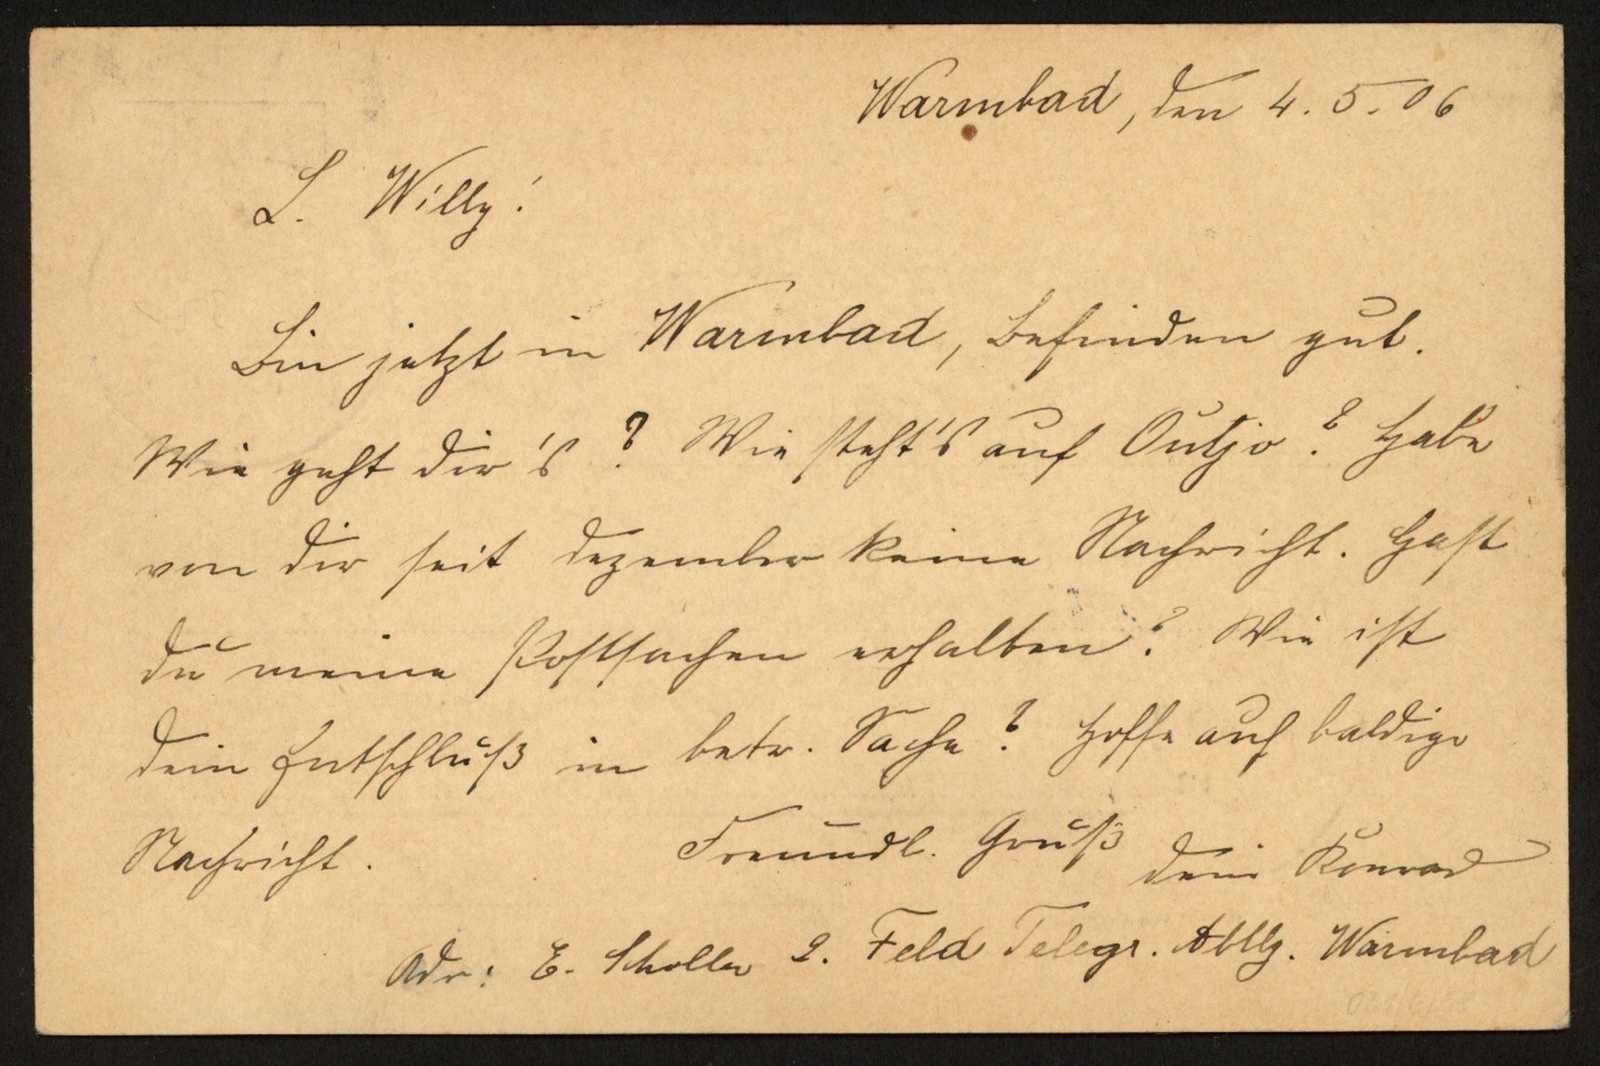 Warmbad, den 4.5.06
L. Willy!
Bin jetzt in Warmbad, Befinden gut.
Wie geht dir's? Wie steht's auf Outjo? Habe
von dir seit Dezember keine Nachricht. Hast
du meine Postsachen erhalten? Wie ist
dein Entschluß in betr. Sache? Hoffe auf baldige
Nachricht. Freundl. Gruß dein Konrad
Adr: E. Scholler 2. Feld Telegr. Abtlg. Warmbad